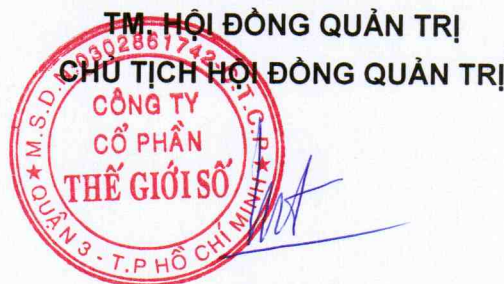 TM. HỘI ĐỒNG QUẢN TRỊ
CHỦ TỊCH HỘI ĐỒNG QUẢN TRỊ
M.S.D.N: 0302861742-C.T.C.P
CÔNG TY
CỔ PHẦN
THẾ GIỚI SỐ
QUẬN 3 - T.P HỒ CHÍ MINH